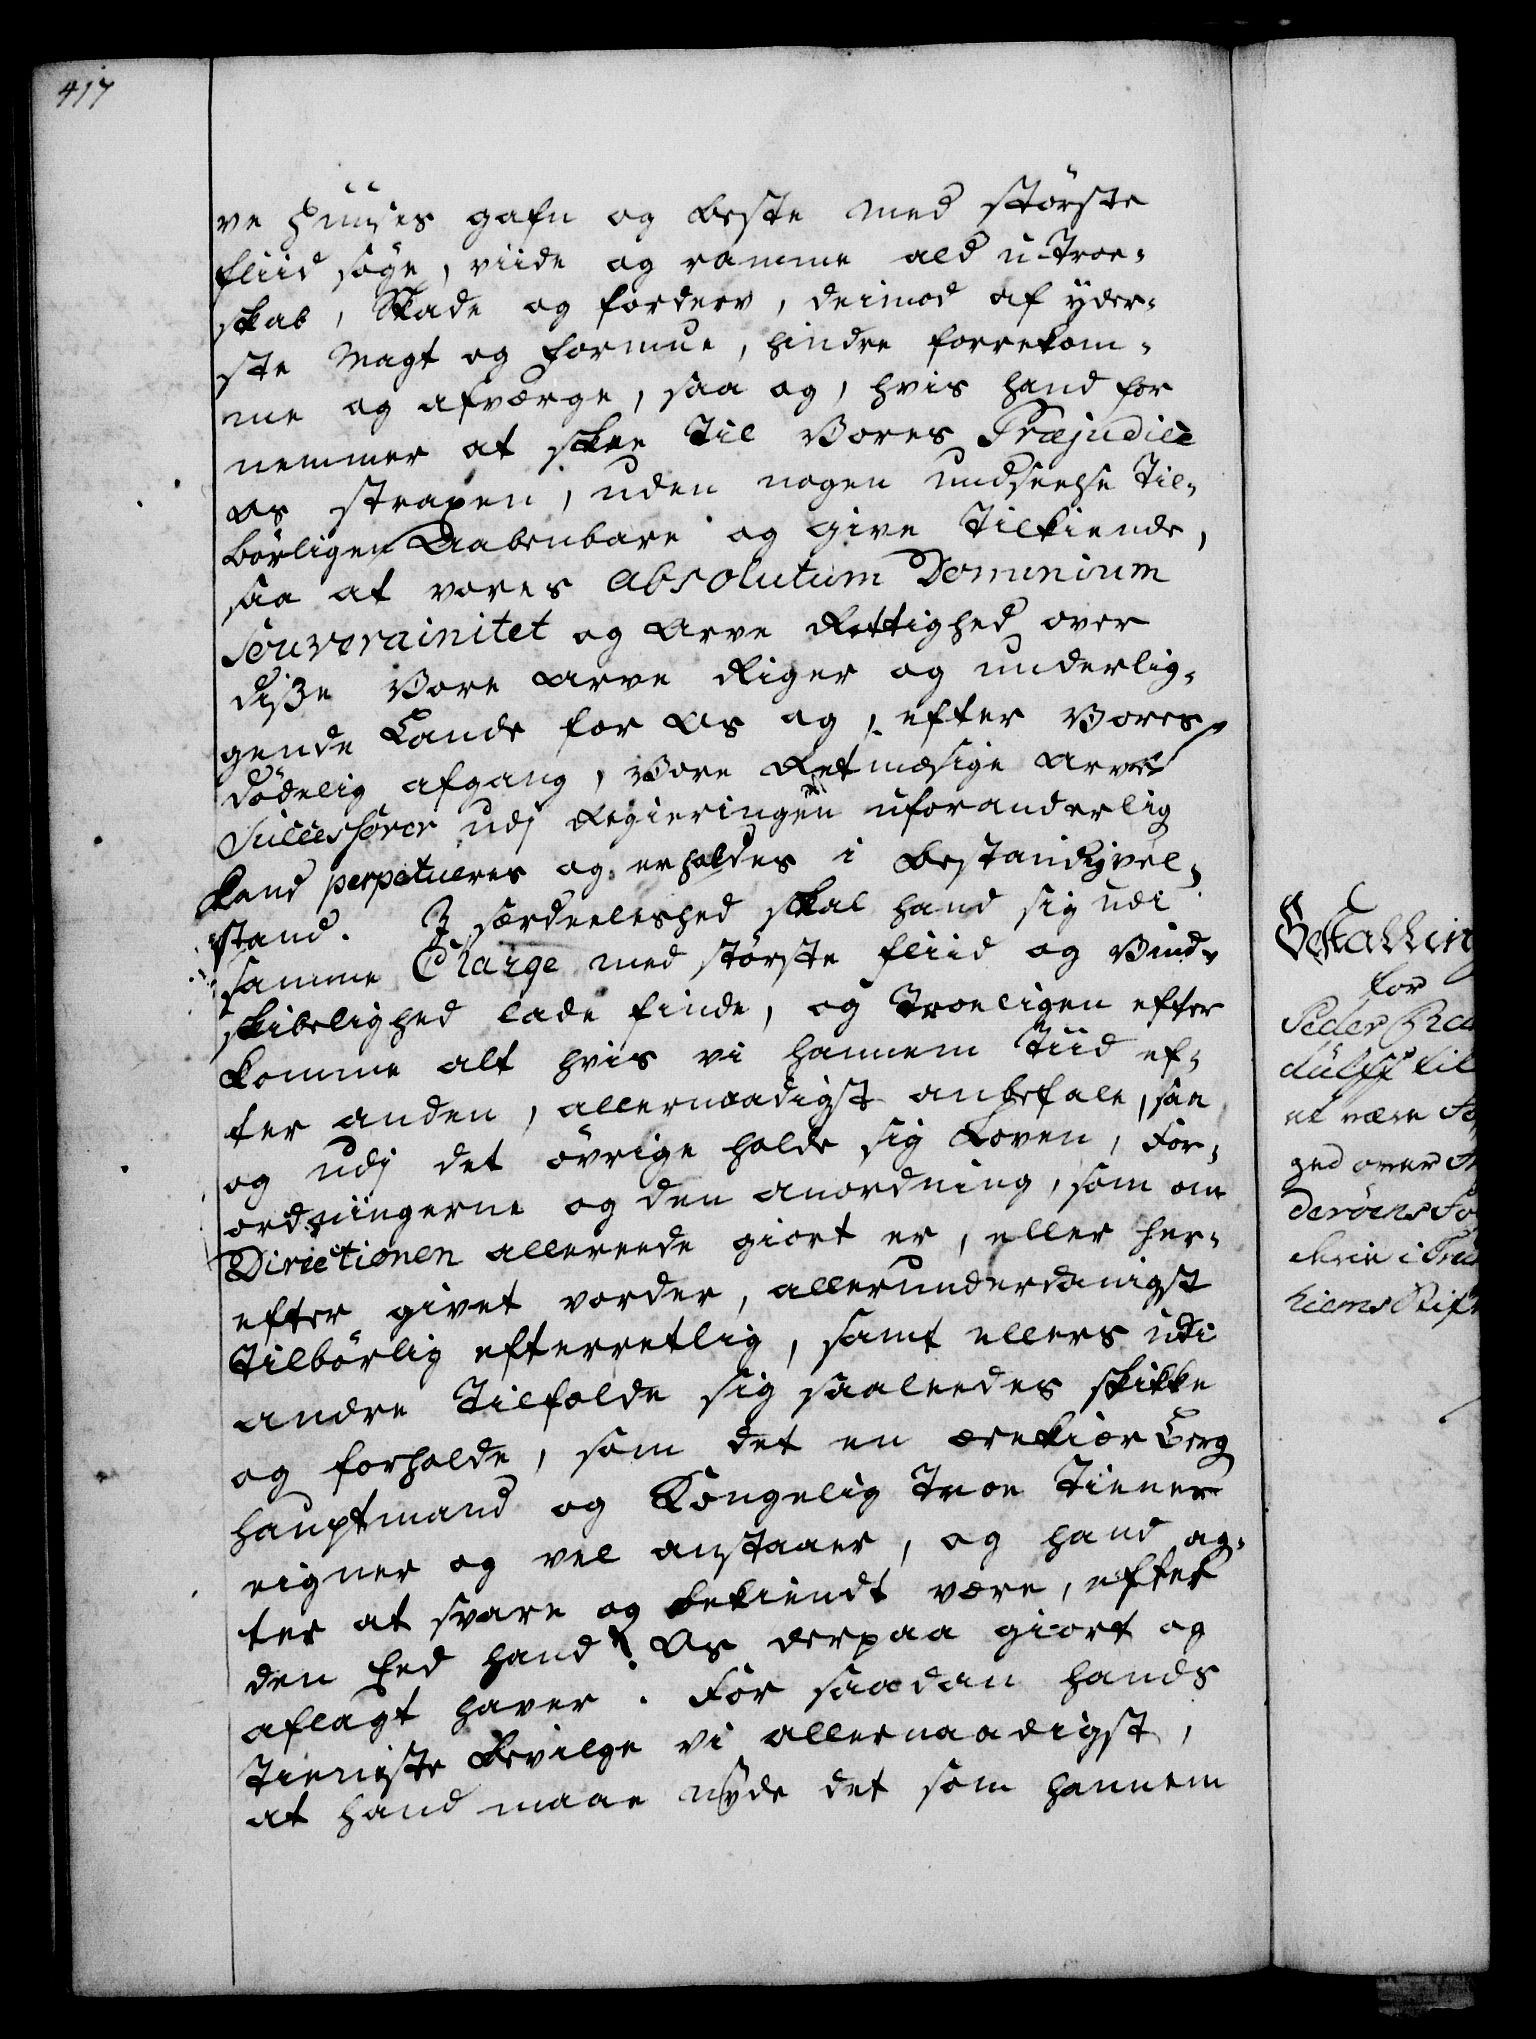 417
ve Huuses gafn og beste med största
fliid söge, viide og ramme ald u-troe-
skab, Skade og forderv, deimod af yder-
ste Magt og formue, hindre forrekom-
me og afværge, saa og, hvis hand for
nemmer at skee til Vores Præjudice
Os straxen, uden nogen undseelse til-
börligen Aabenbare og give tilkiende,
saa at vores Absolutum Dominium
Souverainitet og Arve Rettighed over
disze Vore Arve Riger og underlig-
gende Lande for Os og, efter Vores
dödelig afgang, Vore Retmæsige Arve
Successorer udj Regieringen uforanderlig
kand perpetueres og erholdes i bestandig vel-
stand. J særdeeleshed skal hand sig udi
samme Charge med störste fliid og Vind-
skibelighed lade finde, og troeligen efter
komme alt hvis vi hannem tiid ef-
ter anden, allernaadigst anbefale, saa
og udj det övrige holde sig Loven, For-
ordningerne og den anordning, som om
Directionen allereede giort er, eller her-
efter givet vorder, allerunderdanigst
tilbörlig efterretlig, samt ellers udi
andre tilfælde sig saaleedes skikke
og forholde, som det en ærekiær Berg
hauptmand og Kongelig troe tiener
eigner og vel anstaaer, og hand ag-
ter at svare og bekiendt være, efter
den Eed hand Os derpaa giort og
aflagt haver. For saadan hands
tieniste bevilge vi allernaadigst,
at hand maae nyde det som hannem
Bestalling
for
Peder Ran
dulff til
at være Fo
ged over In
deröens Fo
derie i Tru
hiems Stift